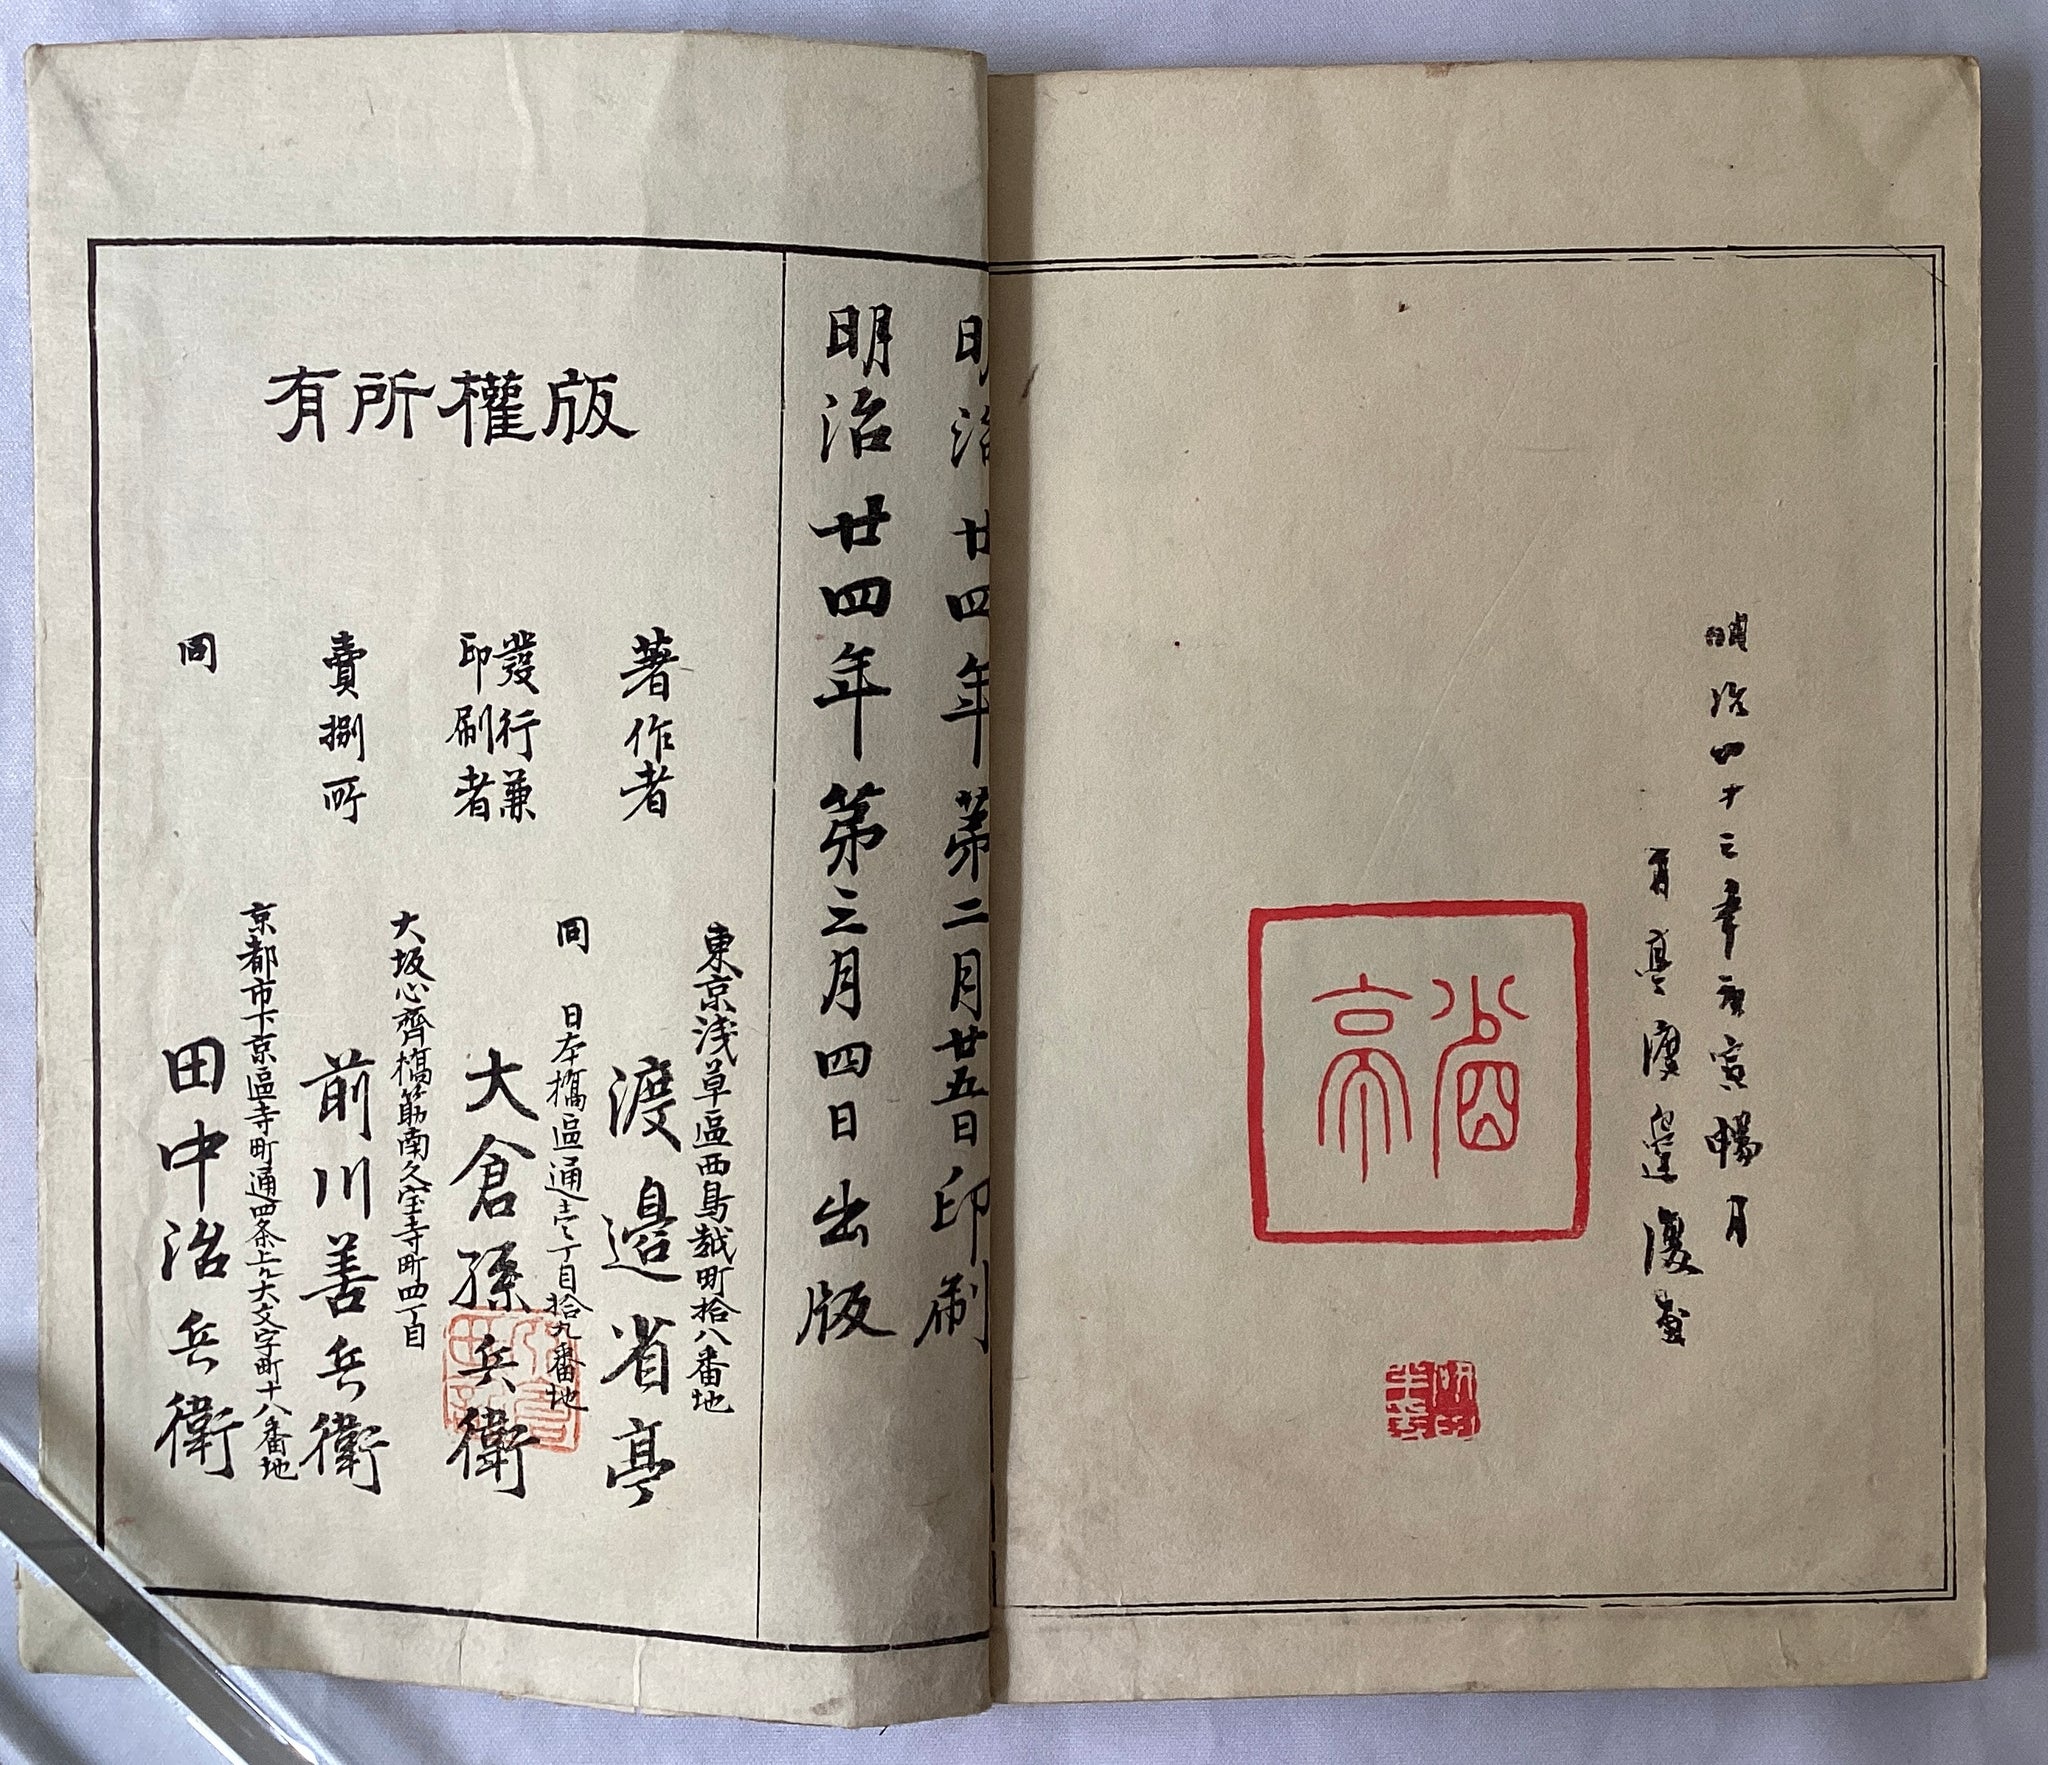 明治四十三年
月
省亭
明治廿四年第二月廿五日印刷
明治廿四年第三月四日出版
版權所有
著作者
東京浅草區西鳥越町拾八番地
渡邉省亭
發行兼
印刷者
同 日本橋區通壱丁目拾九番地
大倉孫兵衛
賣捌所
大坂心齊橋筋南久宝寺町四丁目
前川善兵衛
同
京都市下京區寺町通四条上ル大文字町十八番地
田中治兵衛